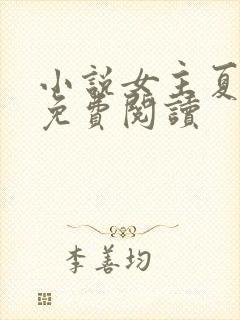 小說女主夏
免費閱讀
李善均